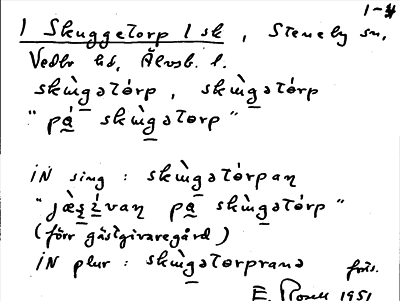 1-4
1 Skuggetorp 1 sk, Steneby sn,
Vedbo hd, Älvsb. l.
skùgətórp, skùgətórp
"pá skùgətorp"
iN sing: skùgətórpaŋ
"jæ̀sʒ́vaŋ pá skùgətórp"
(förr gästgivaregård)
iN plur: skùgətorprana forts.
E. Rosell 1951